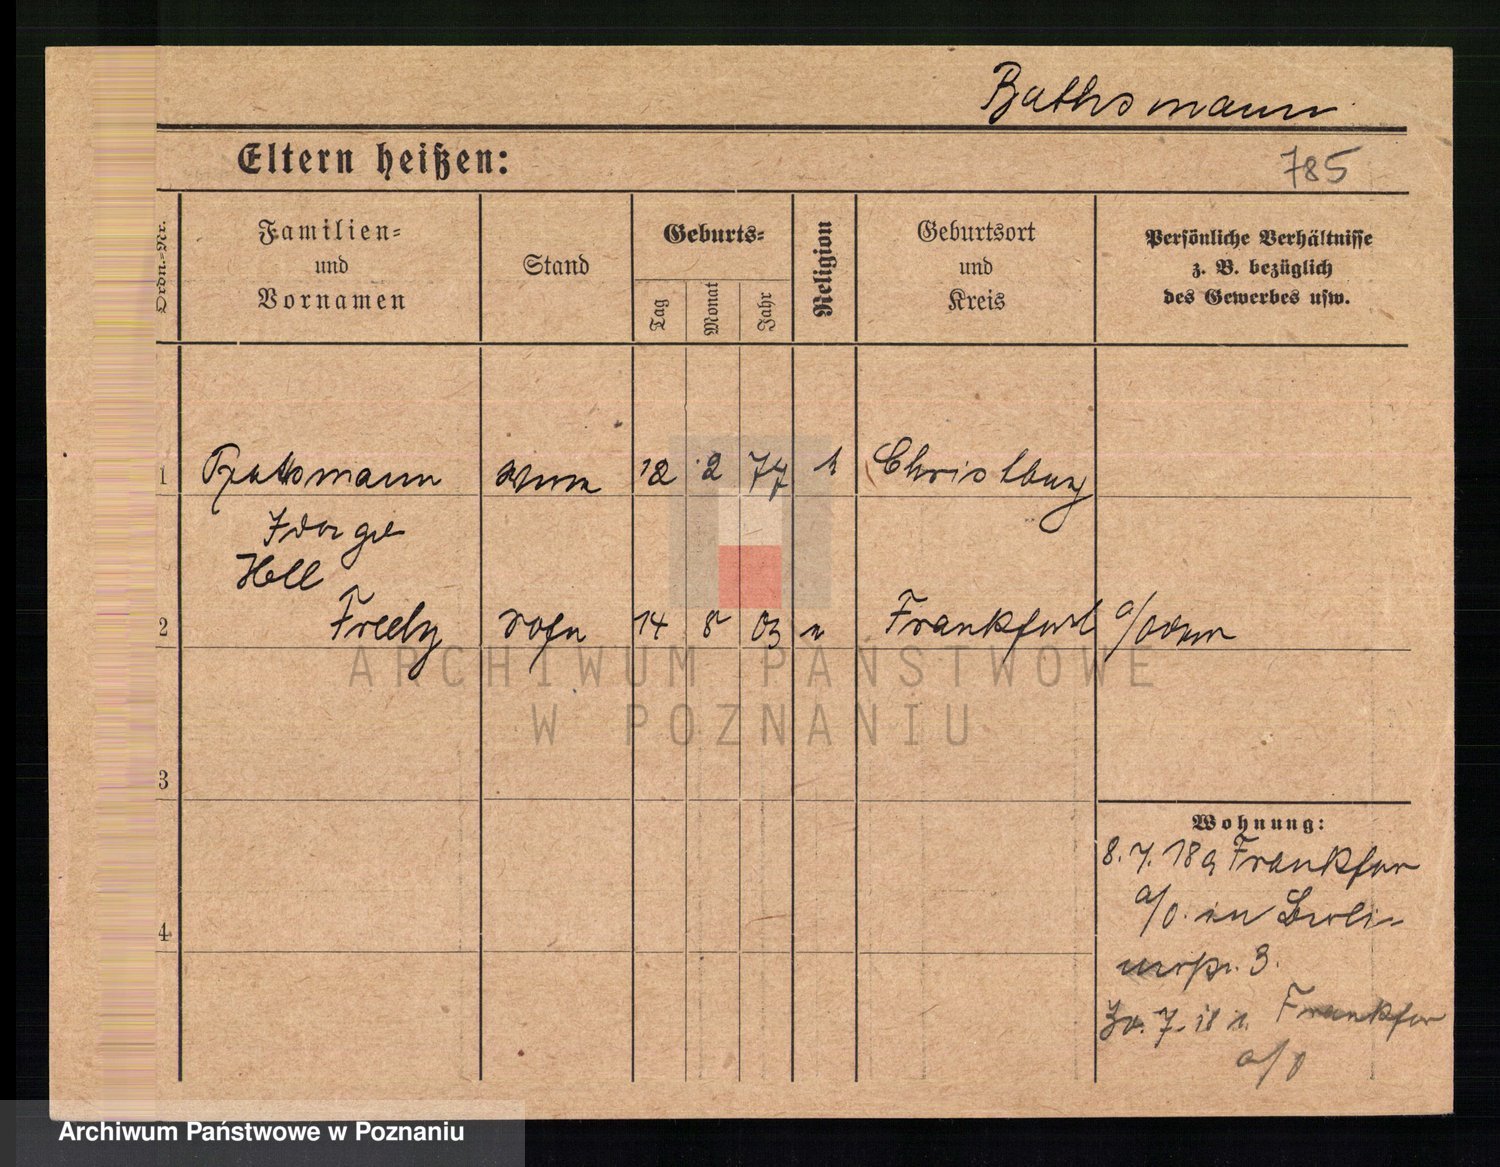 Bathsmann
Eltern heißen:
785
Ordn.-Nr.
Familien-
und
Vornamen
Stand
Geburts-
Tag
Monat
Jahr
Religion
Geburtsort
und
Kreis
Persönliche Verhältnisse
z. B. bezüglich
des Gewerbes usw.
1 Bathsmann 12 2 77 Christburg
Hell
2 14 8 03 Frankfurt a/Oder
3
4
Wohnung:
8. 7. 18 a Frankfur
a/O. in Berli-
3.
7. 18 Frankfur
a/O
ARCHIWUM PAŃSTWOWE
W POZNANIU
Archiwum Państwowe w Poznaniu